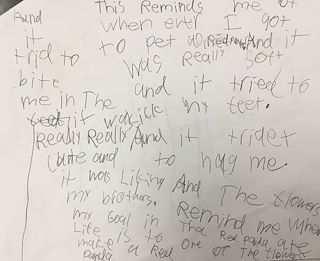 This Reminds me of
when ever I got
to pet a Red panda And it
was really soft
and it tried to
lick my feet.
And it trider
to hug me.
And
it
trid to
bite
me in The
if was
Really Really
Cute and
it was Lifing And
my brothers.
my Goal in
Life is to
make a Red
panda
The flowers
Remind me when
The Red panda ate
One of The flowers